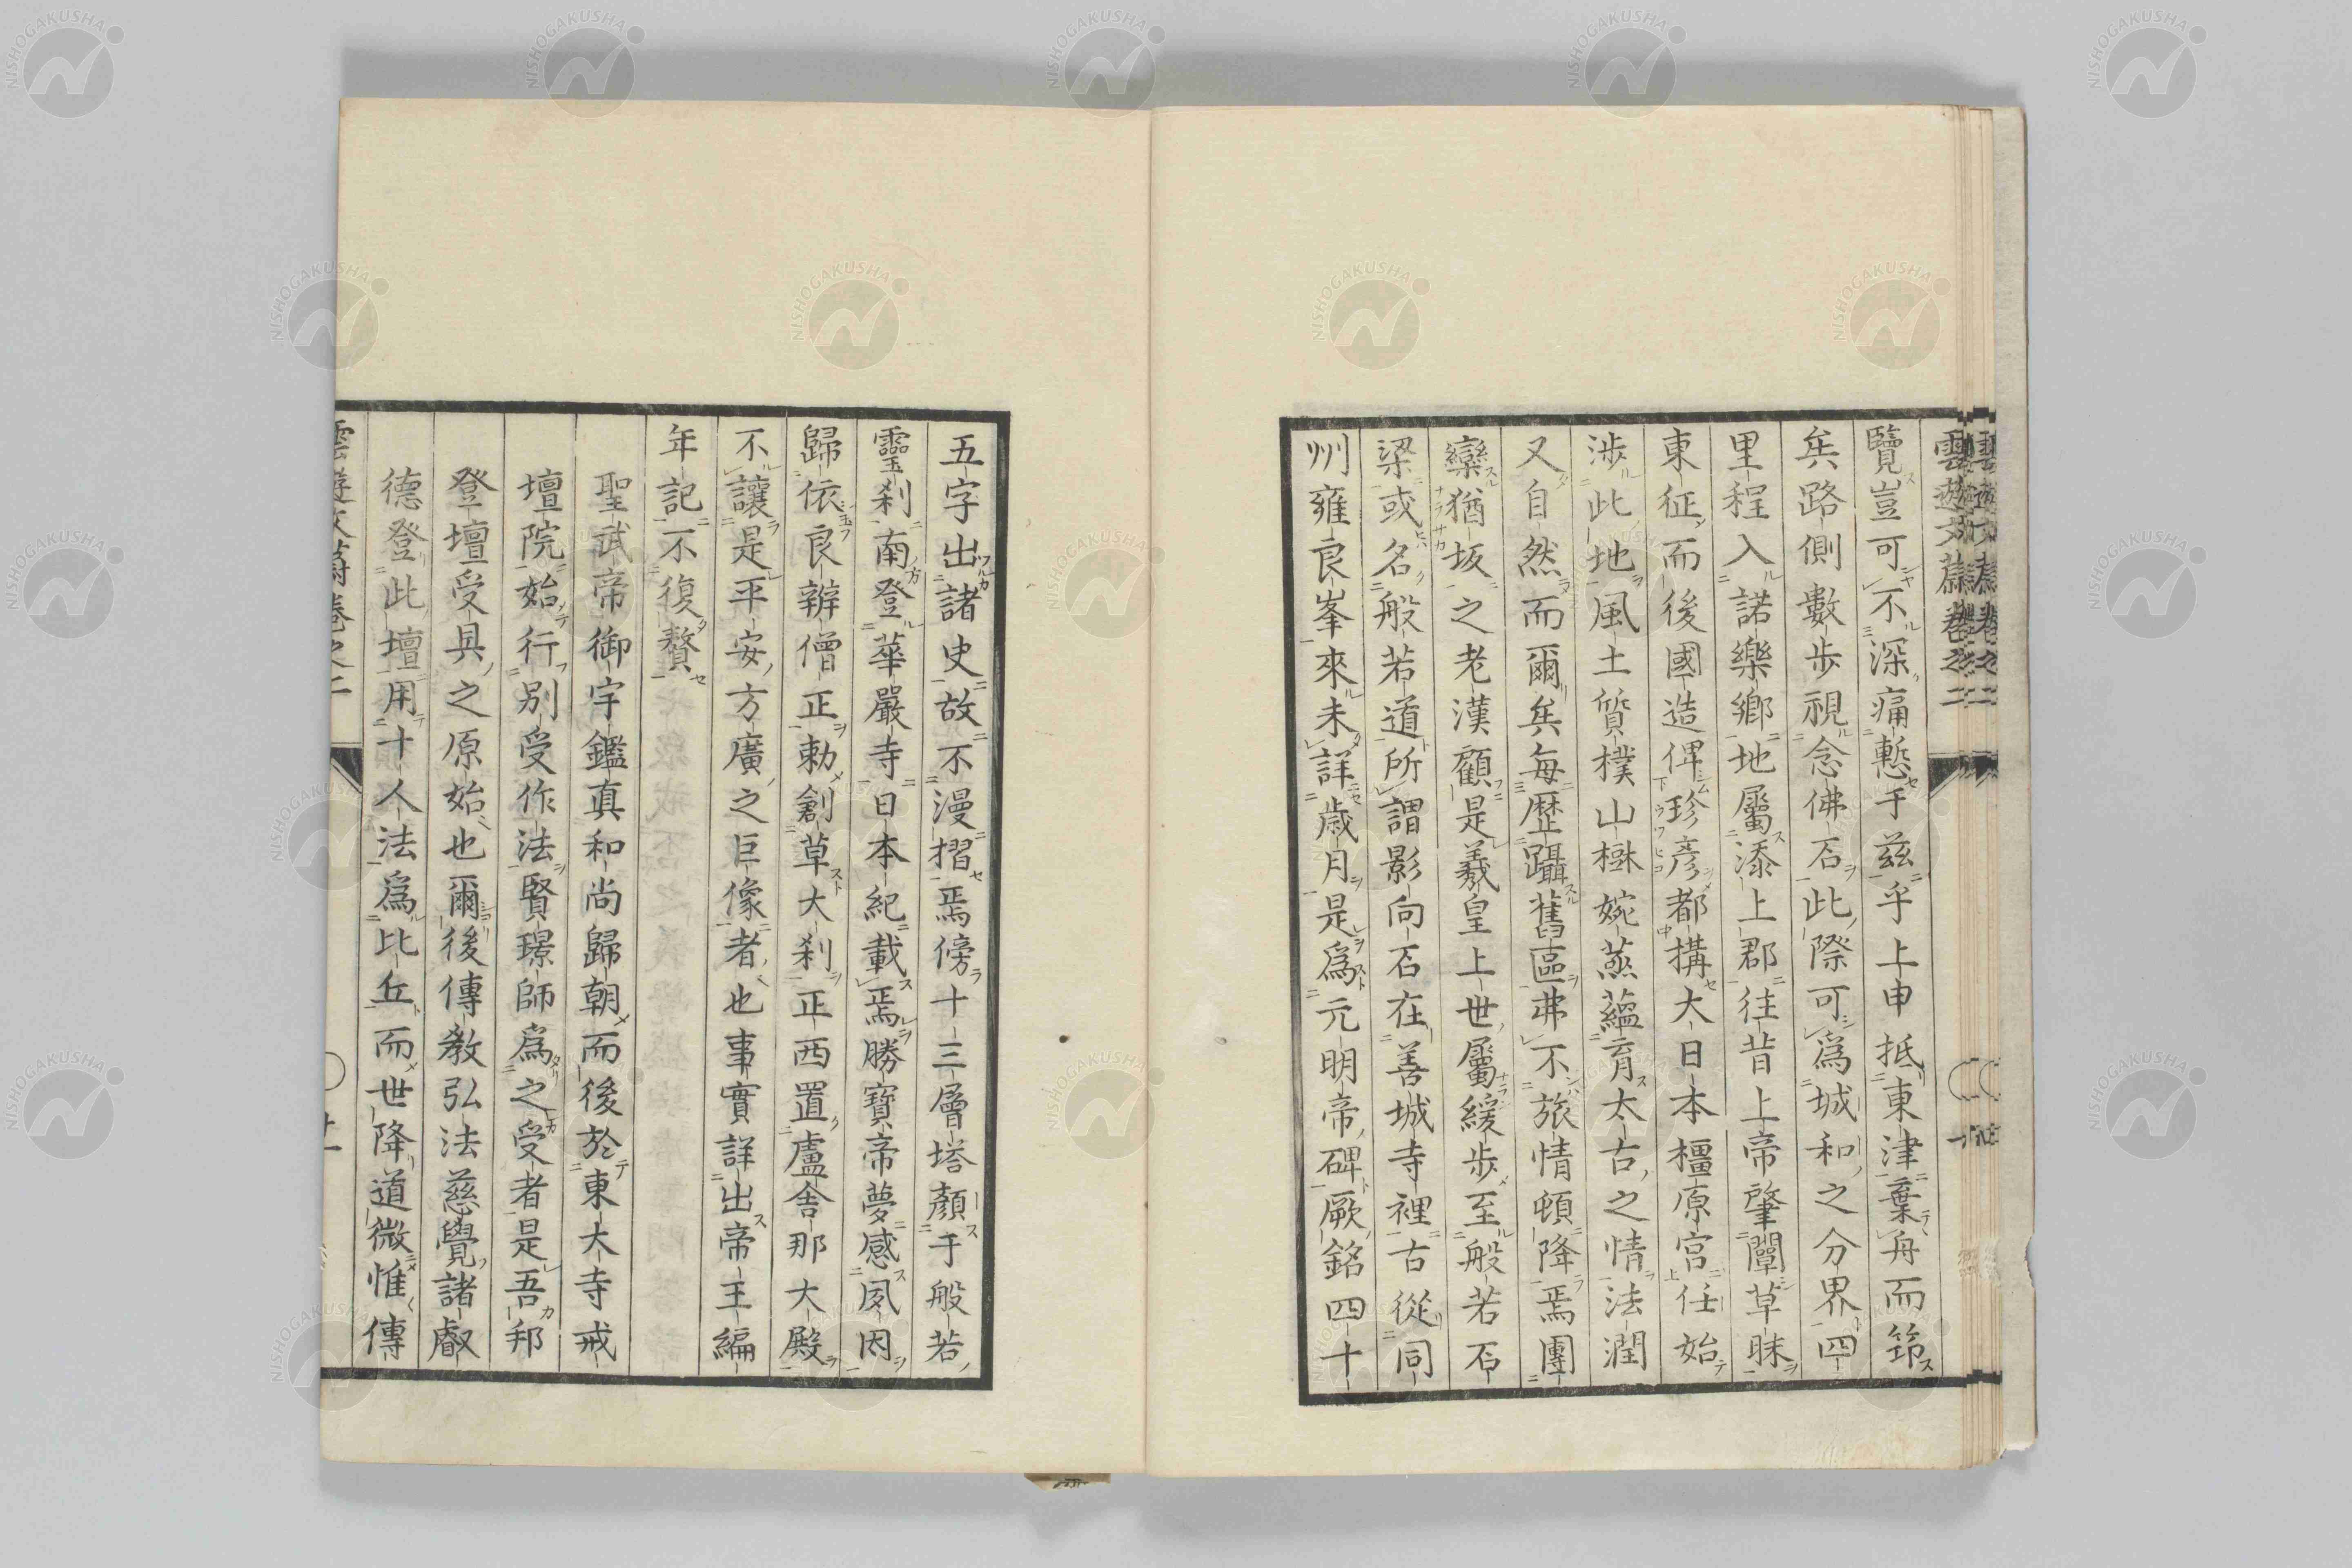 覽豈可不深痛慙于茲乎上申抵東津棄舟而筇
矣路側數步視念佛石此際可為城和之分界四
里程入諾樂鄉地屬添上郡往昔上帝肇闡草昧
東征而後國造俾珍彥都搆大日本橿原宮任始
涉此地風土質樸山樹婉蒸蘊育太古之情法潤
又自然而爾矣每歷躡舊區弗不旅情頓降焉團
欒猶坂之老漢顧是羲皇上世屬緩步至般若石
梁或名般若道所謂影向石在善城寺裡古從同
州雍良峯來未詳歲月是為元明帝碑厥銘四十
五字出諸史故不漫摺焉傍十三層塔顏于般若
靈刹南登華嚴寺日本紀載焉勝寶帝夢感夙因
歸依良辨僧正勅創草大刹正西置盧舍那大殿
不讓是平安方廣之巨像者也事實詳出帝王編
年記不復贅
聖武帝御宇鑑真和尚歸朝而後於東大寺戒
壇院始行別受作法賢璟師為之受者是吾邦
登壇受具之原始也爾後傳教弘法慈覺諸叡
德登此壇用十人法為比丘而世降道微惟傳
雲遊文蔚卷之二